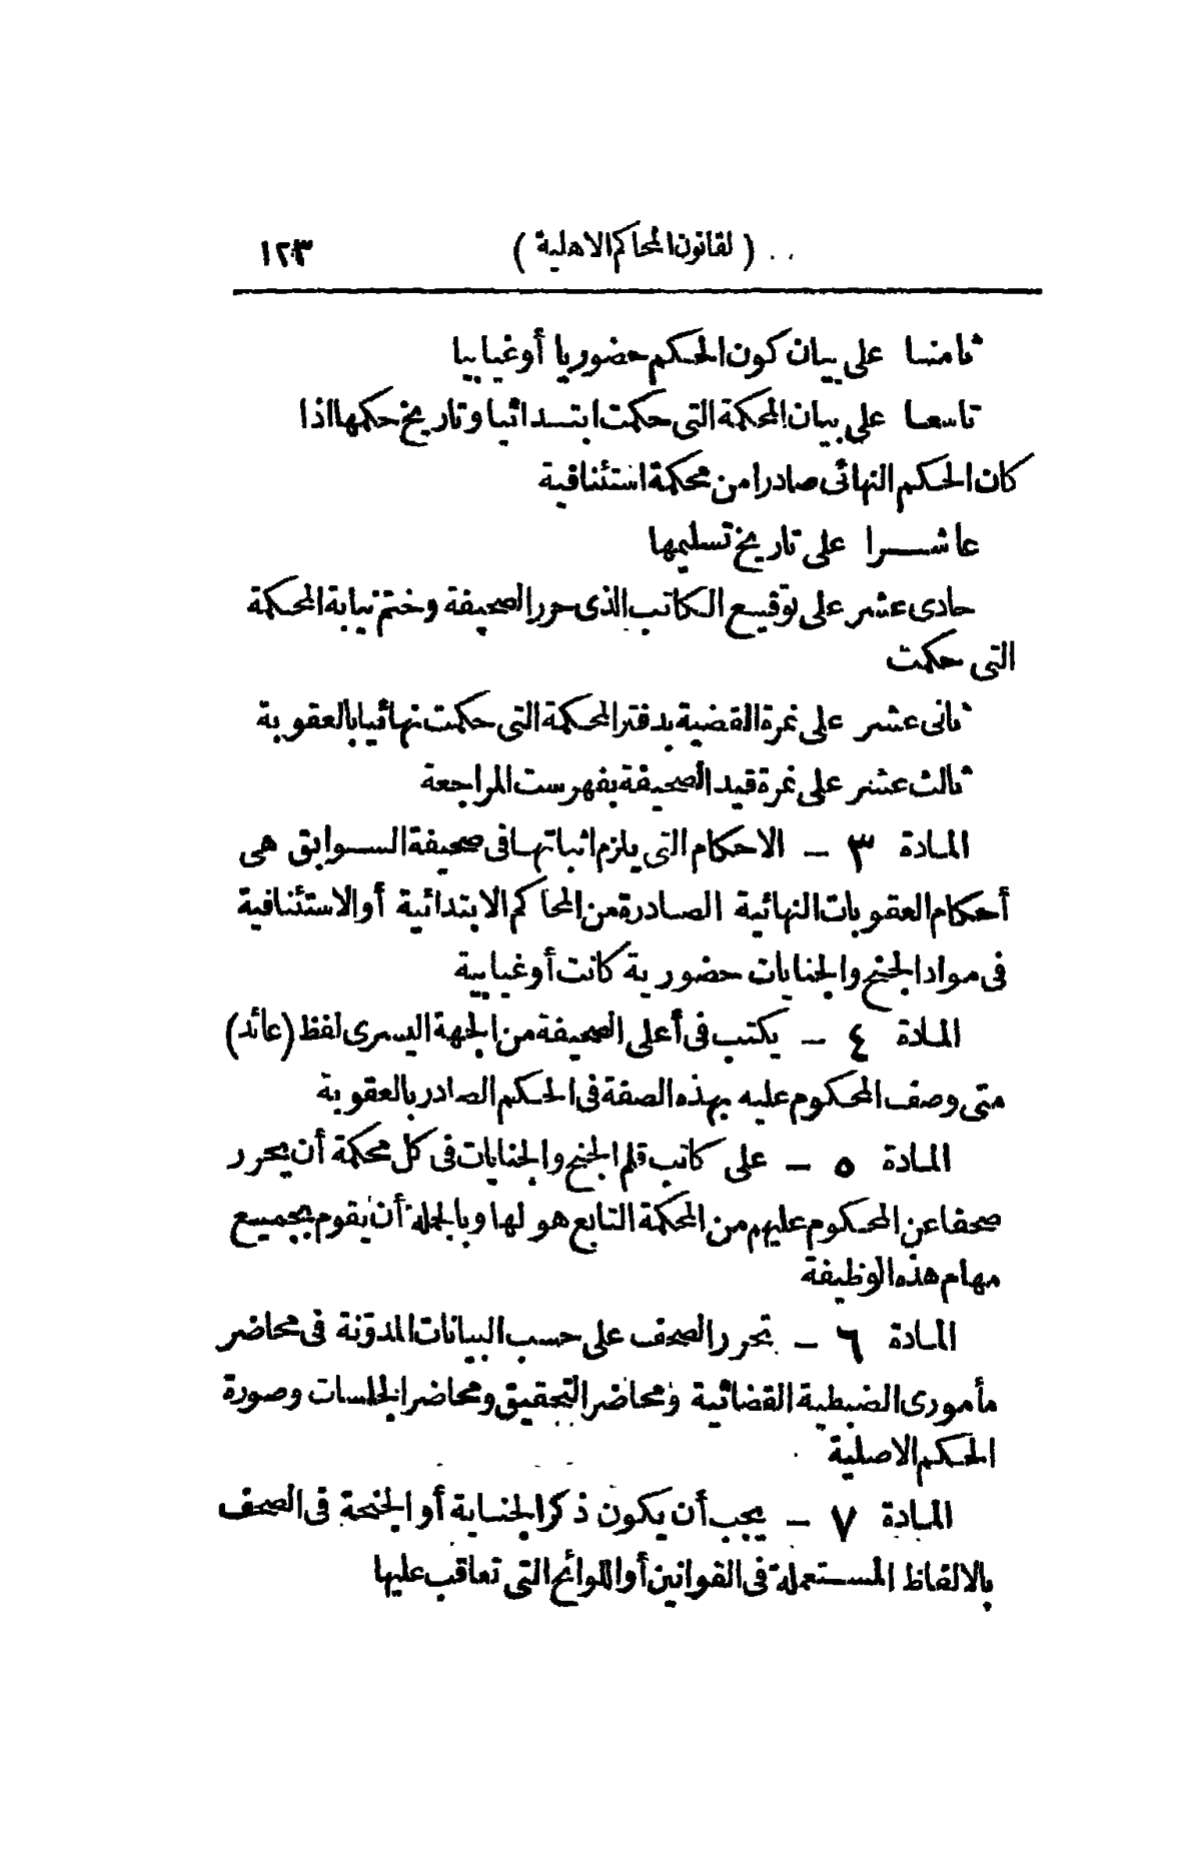 ( لقانون المحاكم الاهلية ) ١٢٣
ثامنا على بيان كون الحكم حضوريا أو غيابيا
تاسعا على بيان المحكمة التى حكمت ابتدائيا وتاريخ حكمها اذا
كان الحكم النهائى صادرا من محكمة استئنافية
عاشرا على تاريخ تسليمها
حادى عشر على توقيع الكاتب الذى حرر الصحيفة وختم نيابة المحكمة
التى حكمت
ثانى عشر على نمرة القضية بدفتر المحكمة التى حكمت نهائيا بالعقوبة
ثالث عشر على نمرة قيد الصحيفة بفهرست المراجعة
المادة ٣ – الاحكام التى يلزم اثباتها فى صحيفة السوابق هى
أحكام العقوبات النهائية الصادرة من المحاكم الابتدائية أو الاستئنافية
فى مواد الجنح والجنايات حضورية كانت أو غيابية
المادة ٤ – يكتب فى أعلى الصحيفة من الجهة اليسرى لفظ (عائد)
متى وصف المحكوم عليه بهذه الصفة فى الحكم الصادر بالعقوبة
المادة ٥ – على كاتب قلم الجنح والجنايات فى كل محكمة أن يحرر
صحفا عن المحكوم عليهم من المحكمة التابع هو لها وبالجملة أن يقوم بجميع
مهام هذه الوظيفة
المادة ٦ – تحرر الصحف على حسب البيانات المدوّنة فى محاضر
مأمورى الضبطية القضائية ومحاضر التحقيق ومحاضر الجلسات وصورة
الحكم الاصلية
المادة ٧ – يجب أن يكون ذكر الجناية أو الجنحة فى الصحف
بالالفاظ المستعملة فى القوانين أو اللوائح التى تعاقب عليها